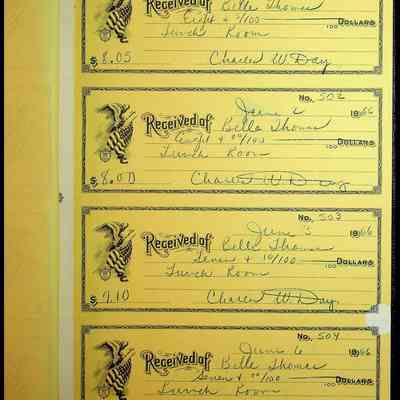 Received of Belle Thomas
Eight & 5/100 100 DOLLARS
Lunch Room
$8.05 Charles W Day
No. 502
June 2 1966
Received of Bella Thomas
Eight & 00/100 100 DOLLARS
Lunch Room
$8.00 Charles W Day
No. 503
June 3 1966
Received of Bella Thomas
Seven & 10/100 100 DOLLARS
Lunch Room
$7.10 Charles W. Day
No. 504
June 6 1966
Received of Belle Thomas
Seven & 100 DOLLARS
Lunch Room